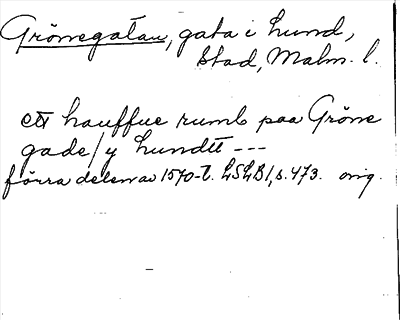 Grönegatan, gata i Lund,
stad, Malm. l.
ett hauffue rumb paa Gröne
gade / y Lundtt ---
förra delen av 1570-t. LSLB1, s. 473. orig.